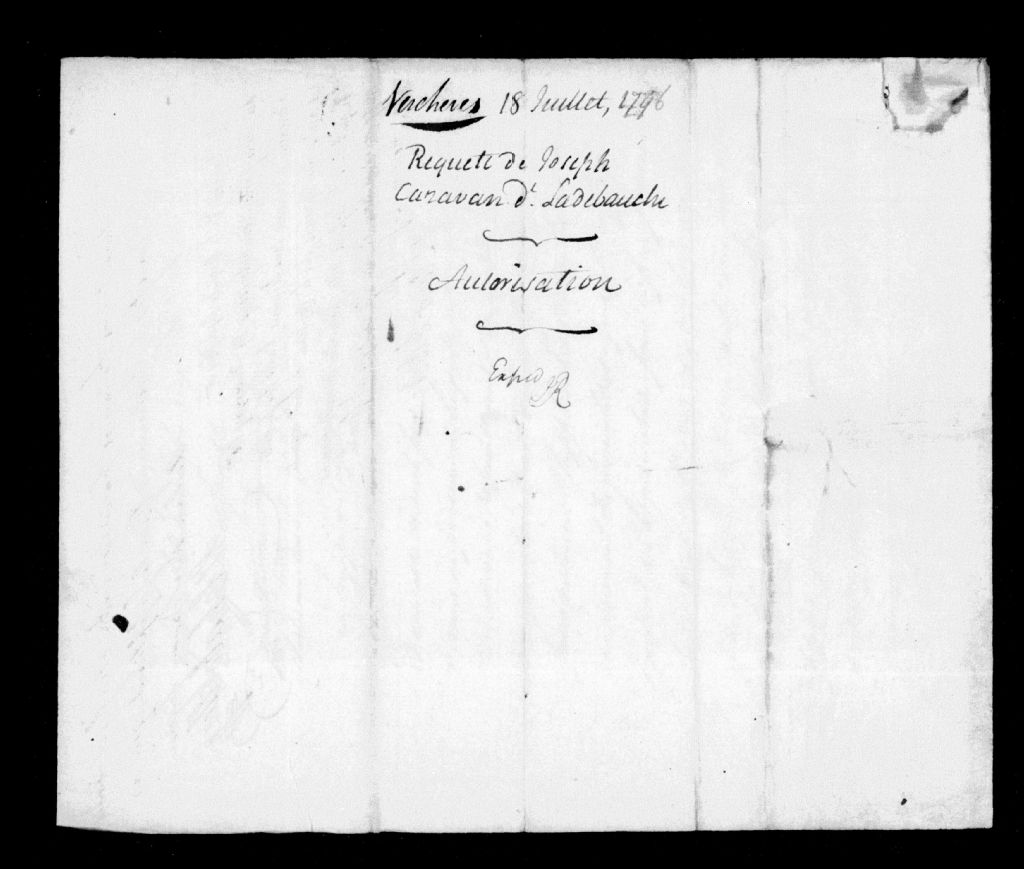 Vercheres 18 Juillet, 1796
Requete de Joseph
Caravan dt. Ladebauche
Autorisation
Exped